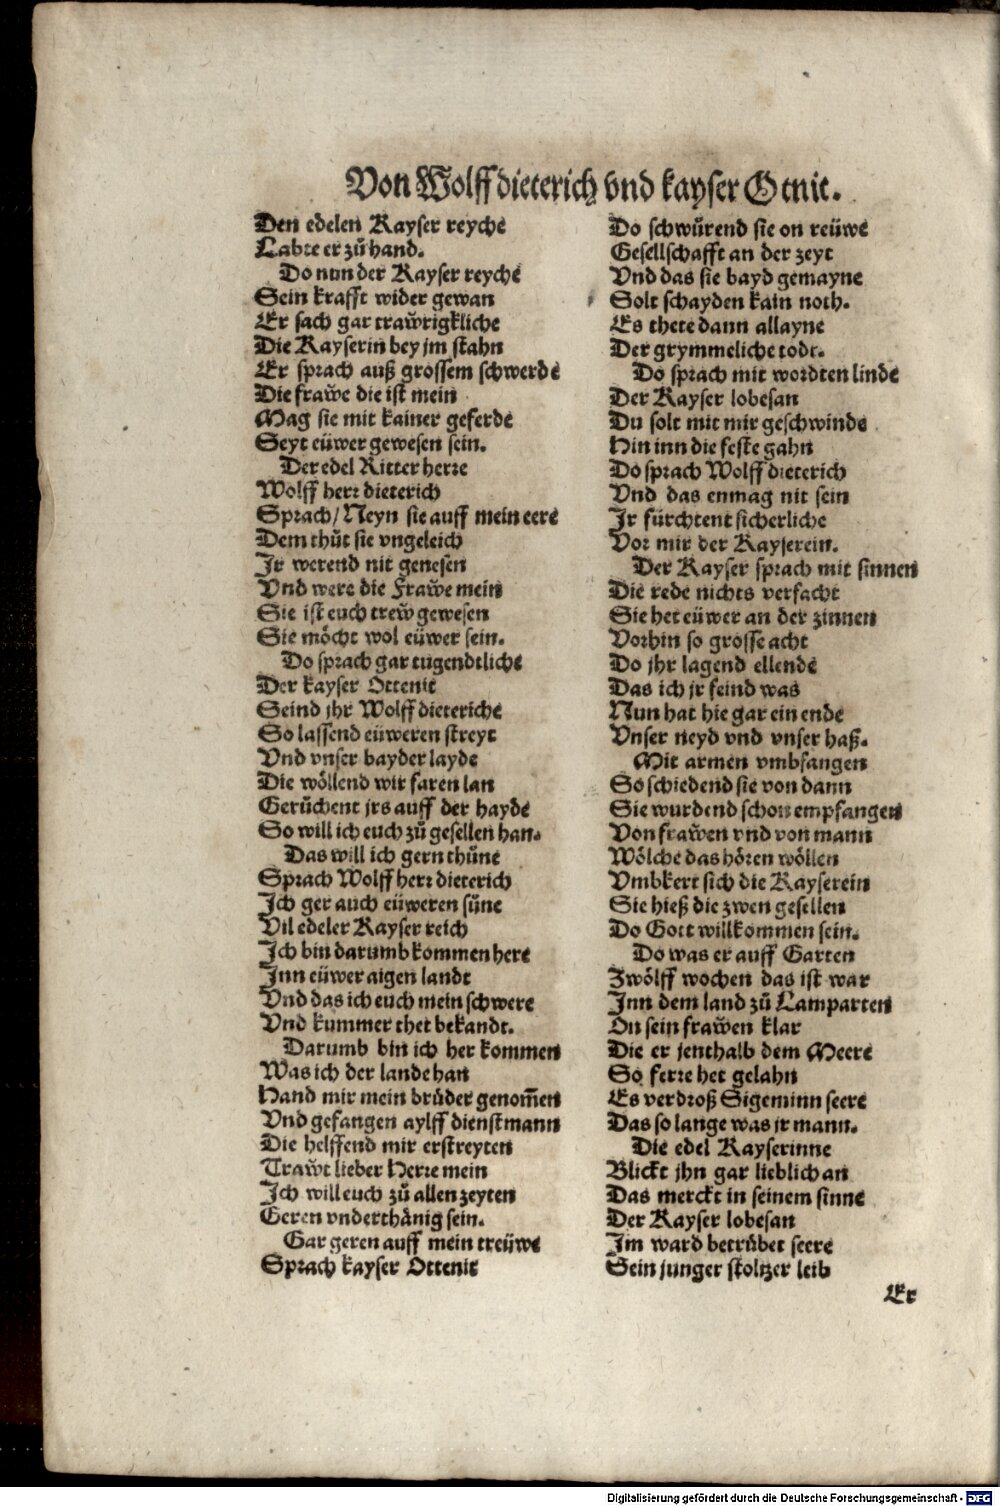 Von Wolffdieterich vnd kayser Otnit.
Den edelen Kayser reyche
Labte er zů hand.
Do nun der Kayser reyche
Sein krafft wider gewan
Er sach gar traẘrigkliche
Die Kayserin bey jm stahn
Er sprach auß grossem schwerde
Die fraẘe die ist mein
Mag sie mit kainer geferde
Seyt eüwer gewesen sein.
Der edel Ritter herre
Wolff herr dieterich
Sprach/ Neyn sie auff mein eere
Dem thůt sie vngeleich
Jr werend nit genesen
Vnd were die Fraẘe mein
Sie ist euch treẘ gewesen
Sie möcht wol eüwer sein.
Do sprach gar tugendtliche
Der kayser Ottenit
Seind jhr Wolff dieteriche
So lassend eüweren streyt
Vnd vnser bayder layde
Die wöllend wir faren lan
Gerůchent jrs auff der hayde
So will ich euch zů gesellen han.
Das will ich gern thůne
Sprach Wolff herr dieterich
Jch ger auch eüweren sůne
Vil edeler Kayser reich
Jch bin darumb kommen here
Jnn eüwer aigen landt
Vnd das ich euch mein schwere
Vnd kummer thet bekandt.
Darumb bin ich her kommen
Was ich der lande han
Hand mir mein brůder genom̃en
Vnd gefangen aylff dienstmann
Die helffend mir erstreyten
Traẘt lieber Herre mein
Jch will euch zů allen zeyten
Geren vnderthånig sein.
Gar geren auff mein treüwe
Sprach kayser Ottenit
Do schwůrend sie on reüwe
Gesellschafft an der zeyt
Vnd das sie bayd gemayne
Solt schayden kain noth.
Es thete dann allayne
Der grymmeliche todt.
Do sprach mit wordten linde
Der Kayser lobesan
Du solt mit mir geschwinde
Hin inn die feste gahn
Do sprach Wolff dieterich
Vnd das enmag nit sein
Jr fürchtent sicherliche
Vor mir der Kayserein.
Der Kayser sprach mit sinnen
Die rede nichts verfacht
Sie het eüwer an der zinnen
Vorhin so grosse acht
Do jhr lagend ellende
Das ich jr feind was
Nun hat hie gar ein ende
Vnser neyd vnd vnser haß.
Mit armen vmbfangen
So schiedend sie von dann
Sie wurdend schon empfangen
Von fraẘen vnd von mann
Wölche das hören wöllen
Vmbkert sich die Kayserein
Sie hieß die zwen gesellen
Do Gott willkommen sein.
Do was er auff Garten
Zwölff wochen das ist war
Jnn dem land zů Lamparten
On sein fraẘen klar
Die er jenthalb dem Meere
So ferre het gelahn
Es verdroß Sigeminn seere
Das so lange was jr mann.
Die edel Kayserinne
Blickt jhn gar lieblich an
Das merckt in seinem sinne
Der Kayser lobesan
Jm ward betrůbet seere
Sein junger stoltzer leib
Er
Digitalisierung gefördert durch die Deutsche Forschungsgemeinschaft - DFG